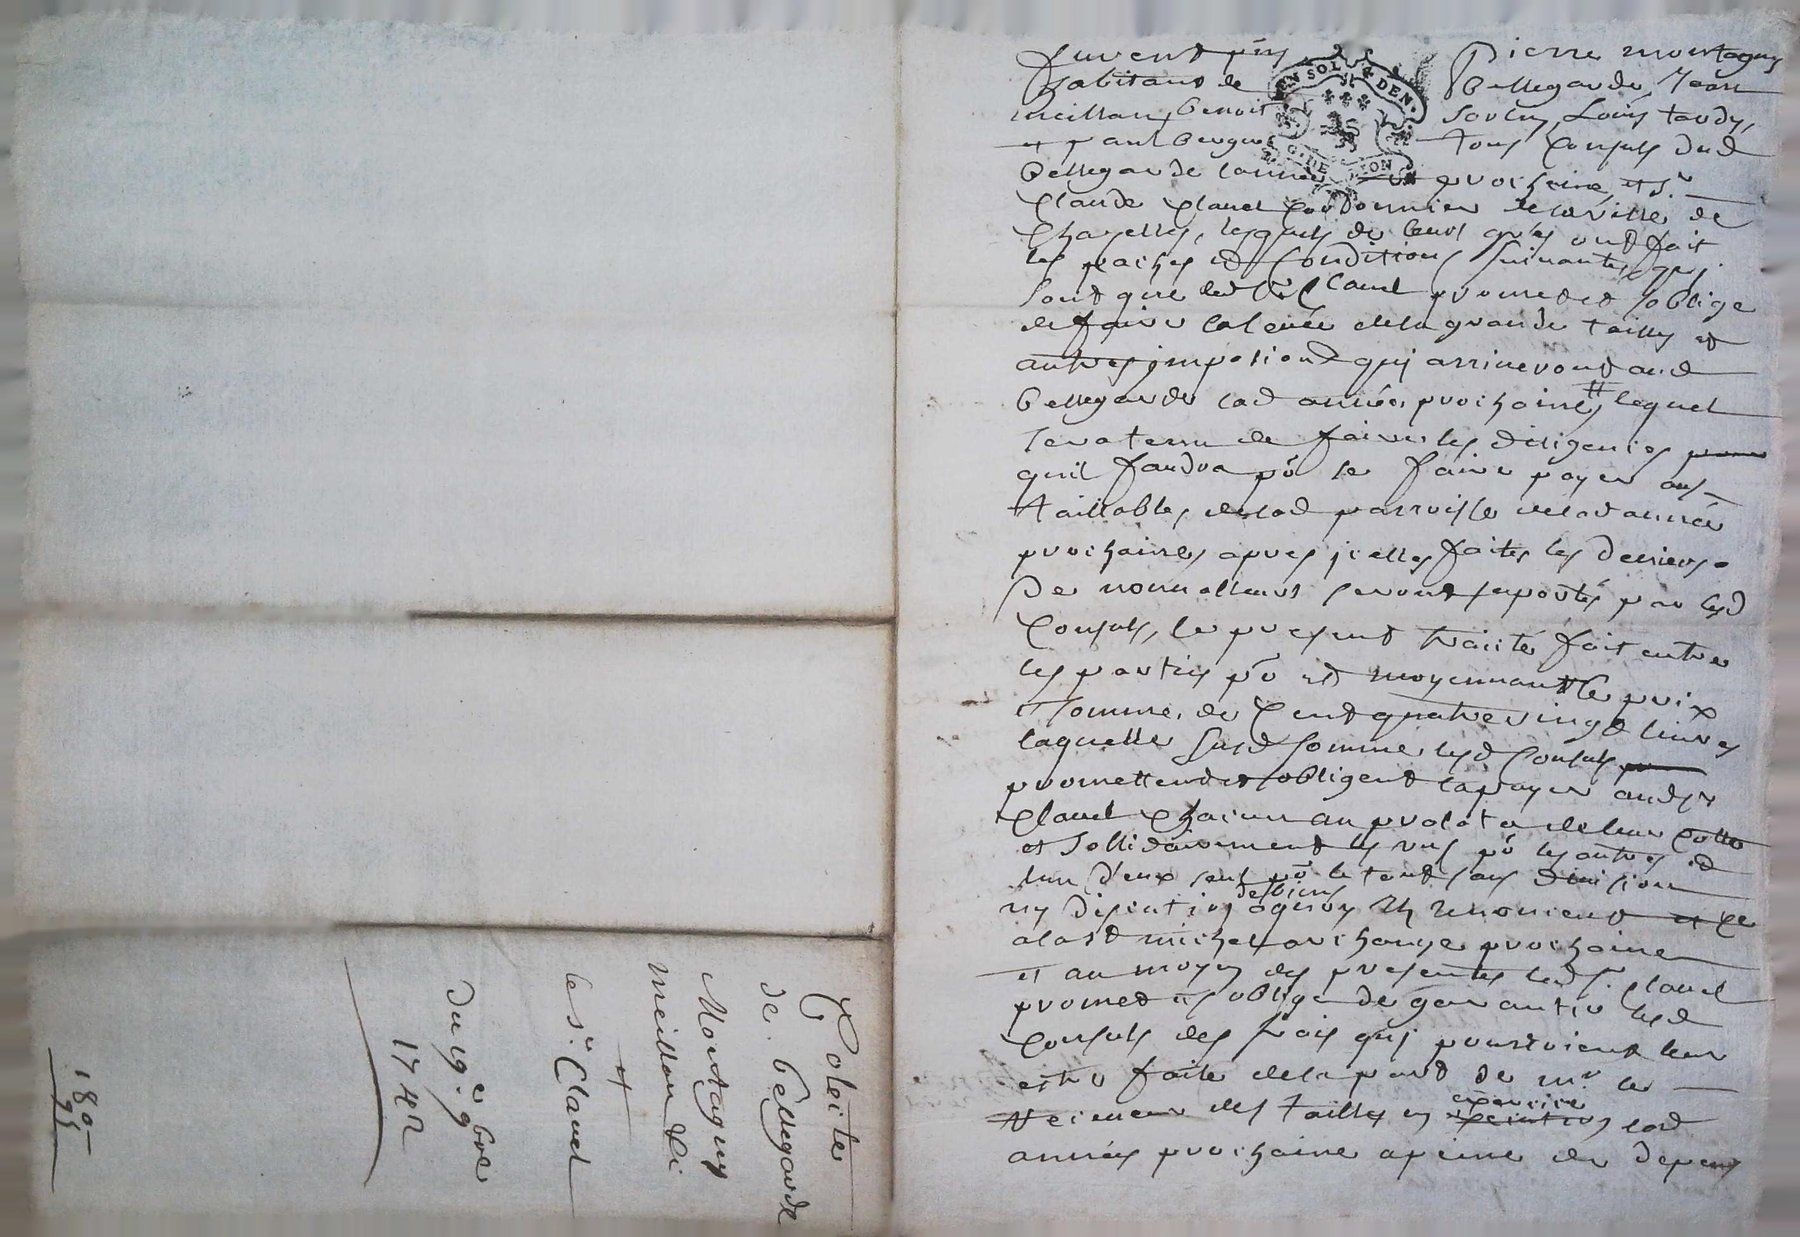 furent pñs Pierre montagny
habitant de Bellegarde, Jean
meillan, benoit Louis tardy,
et tous Consuls dud
Bellegarde lannée prochaine, et Sr
Claude Clavel Cordonnier de la ville de
Chazelles, lesquels de leurs grés ont fait
les paches et Conditions suivantes, qui
sont que led Sr Clavel promet et soblige
de faire la levée de la grande taille et
autres impositions qui arriveront aud
Bellegarde lad année prochaine, lequel
sera tenu de faire les diligences
quil faudra pr se faire payer aux
taillables de lad parroisse de lad année
prochaine, apres icelles faites les deniers
De nonvalleurs seront suportés par lesd
Consuls, le present traité fait entre
les parties pr et moyennant le prix
et somme de Cent quatre vingt livres
laquelle susd somme lesd Consuls
promettent et obligent la payer aud Sr
Clavel Chacun au prolata de leur Cotte
et sollidairement les uns pr les autres et
lun d'eux seul pr le tout sans division
des biens
ny discution aquoy ils renoncent et ce
a la st michel archange prochaine
et au moyen des presentes led Sr Clavel
promet et soblige de garantir lesd
Consuls des frais qui pourroient leur
estre faits de la part de mr le
Receveur des tailles en exercice lad
année prochaine a peine de depens
Coleite
de Bellegarde
Montagny
meillan &c
et
le Sr Clavel
Du 19e 9bre
1742
180
95
EN SOL 4 DEN.
G. DE LYON